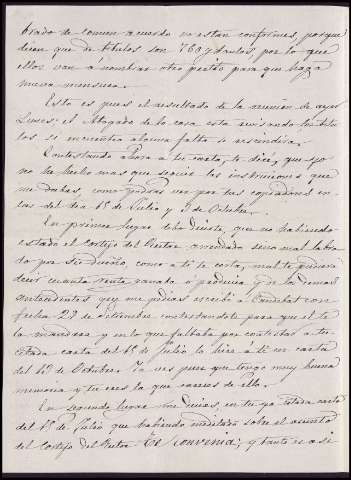 brado de comun acuerdo no estan conformes, porque
dicen que de titulos son 760 y tantos, por lo que
ellos van á nombrar otro perito para que haga
nueva mensura.
Esto es pues el resultado de la reunion de ayer
Lunes: el Abogado de la casa esta revisando los titu-
los si encuentra alguna falta se rescindira.
Contestando ahora á tu carta, te diré, que yo
no he hecho mas que seguir las instruciones que
me dabas, como podras ver por tus copiadores en
las del dia 1º de Julio y 3 de Octubre.
En primer lugar debo decirte, que no habiendo
estado el Cortijo del Rector arrendado sino mal labra-
do por su dueño, como á ti te consta, mal te pudiera
decir cuanta renta ganaba ó producia y en los demas
antecedentes que me pedias escribí á
fecha 27 de Setiembre contestandote para que el te
la mandara y en lo que faltaba por contestar á tu
citada carta del 1º de Julio lo hice á ti en carta
del de Octubre. Ya ves pues que tengo muy buena
memoria y tu eres la que careces de ella.
En segundo lugar me dices, en tu ya citada carta
del 1º de Julio que habiendo meditado sobre el asunto
del Cortijo del Rector Te Convenia; y tanto es asi